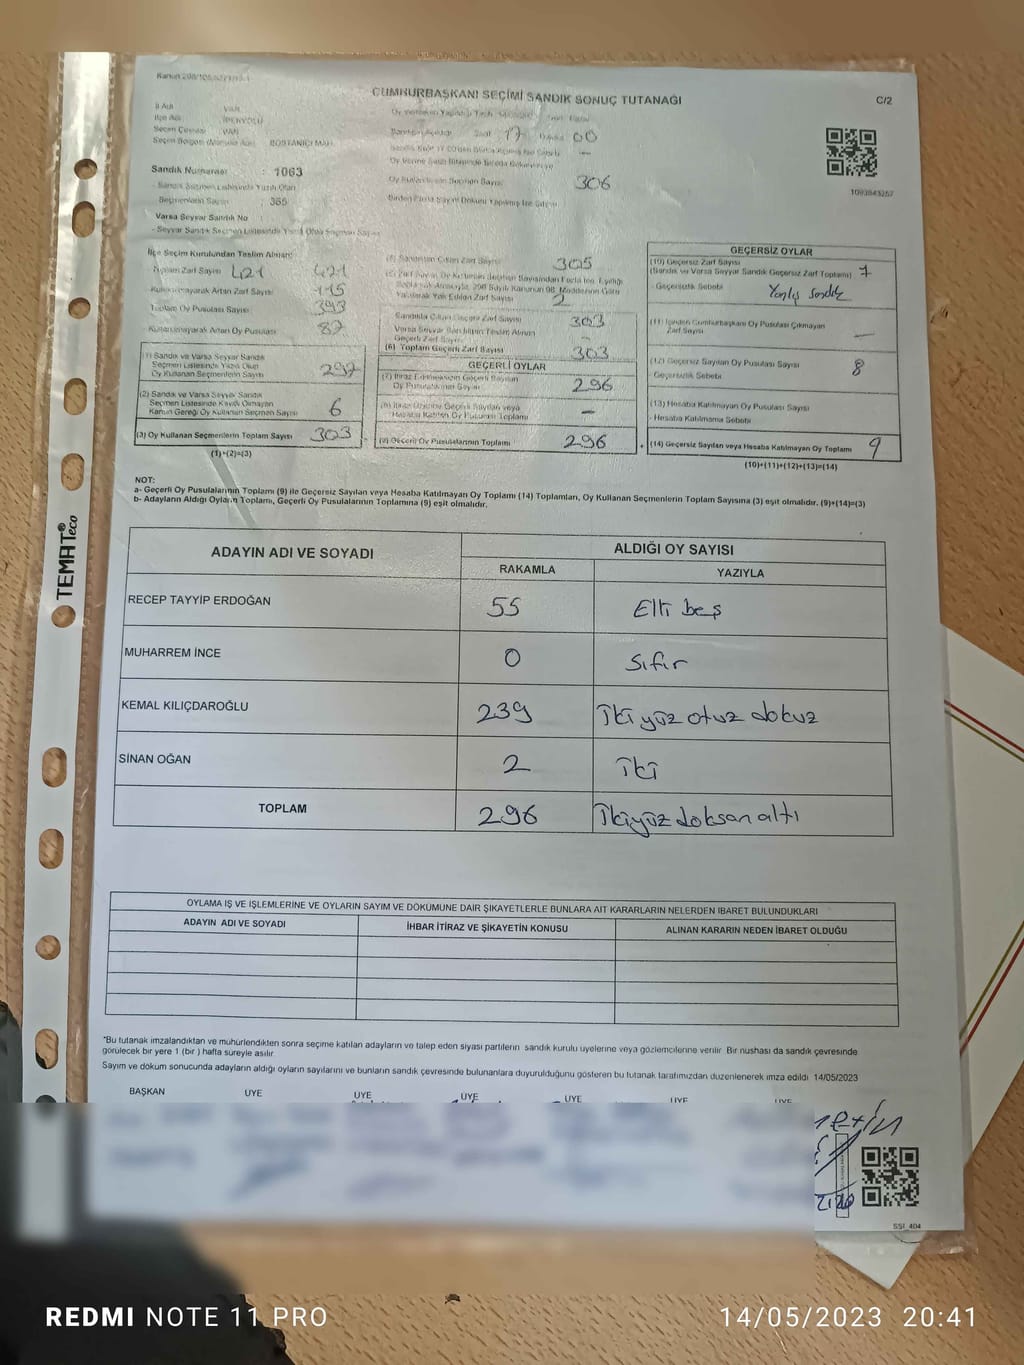 CUMHURBAŞKANI SEÇİMİ SANDIK SONUÇ TUTANAĞI
C/2
İl Adı VAN
İlçe Adı İPEKYOLU
Seçim Çevresi VAN
BOSTANİÇİ MAH.
Saat 17 00
Sandık Numarası : 1063
365
Varsa Seyyar Sandık No :
- Seyyar Sandık Seçmen Listesinde Yazılı Olan Seçmen Sayısı
306
1093843257
İlçe Seçim Kurulundan Teslim Alınan:
Toplam Zarf Sayısı 421 421
Kullanılmayarak Artan Zarf Sayısı
Toplam Oy Pusulası Sayısı 393
Kullanılmayarak Artan Oy Pusulası 87
(1) Sandık ve Varsa Seyyar Sandık
Seçmen Listesinde Yazılı Olup
Oy Kullanan Seçmenlerin Sayısı 297
(2) Sandık ve Varsa Seyyar Sandık
Seçmen Listesinde Kaydı Olmayan
Kanun Gereği Oy Kullanan Seçmen Sayısı 6
(3) Oy Kullanan Seçmenlerin Toplam Sayısı 303
(1)+(2)=(3)
305
2
303
Varsa Seyyar Sandıktan Teslim Alınan
Geçerli Zarf Sayısı
(6) Toplam Geçerli Zarf Sayısı 303
GEÇERLİ OYLAR
296
(9) Geçerli Oy Pusulalarının Toplamı 296
GEÇERSİZ OYLAR
(10) Geçersiz Zarf Sayısı
(Sandık ve Varsa Seyyar Sandık Geçersiz Zarf Toplamı)
- Geçersizlik Sebebi Yanlış Sandık
(11) İçinden Cumhurbaşkanı Oy Pusulası Çıkmayan
Zarf Sayısı —
(12) Geçersiz Sayılan Oy Pusulası Sayısı 8
- Geçersizlik Sebebi
(13) Hesaba Katılmayan Oy Pusulası Sayısı
- Hesaba Katılmama Sebebi
(14) Geçersiz Sayılan veya Hesaba Katılmayan Oy Toplamı 9
(10)+(11)+(12)+(13)=(14)
NOT:
a- Geçerli Oy Pusulalarının Toplamı (9) ile Geçersiz Sayılan veya Hesaba Katılmayan Oy Toplamı (14) Toplamları, Oy Kullanan Seçmenlerin Toplam Sayısına (3) eşit olmalıdır. (9)+(14)=(3)
b- Adayların Aldığı Oyların Toplamı, Geçerli Oy Pusulalarının Toplamına (9) eşit olmalıdır.
TEMAT® eco
ADAYIN ADI VE SOYADI
ALDIĞI OY SAYISI
RAKAMLA YAZIYLA
RECEP TAYYİP ERDOĞAN 55 Elli beş
MUHARREM İNCE 0 Sıfır
KEMAL KILIÇDAROĞLU 239 İki yüz otuz dokuz
SİNAN OĞAN 2 İki
TOPLAM 296 İkiyüz doksan altı
OYLAMA İŞ VE İŞLEMLERİNE VE OYLARIN SAYIM VE DÖKÜMÜNE DAİR ŞİKAYETLERLE BUNLARA AİT KARARLARIN NELERDEN İBARET BULUNDUKLARI
ADAYIN ADI VE SOYADI İHBAR İTİRAZ VE ŞİKAYETİN KONUSU ALINAN KARARIN NEDEN İBARET OLDUĞU
*Bu tutanak imzalandıktan ve mühürlendikten sonra seçime katılan adayların ve talep eden siyasi partilerin sandık kurulu üyelerine veya gözlemcilerine verilir. Bir nüshası da sandık çevresinde
görülecek bir yere 1 (bir) hafta süreyle asılır.
Sayım ve döküm sonucunda adayların aldığı oyların sayılarını ve bunların sandık çevresinde bulunanlara duyurulduğunu gösteren bu tutanak tarafımızdan düzenlenerek imza edildi. 14/05/2023
BAŞKAN ÜYE ÜYE ÜYE ÜYE ÜYE ÜYE
SSI_404
REDMI NOTE 11 PRO
14/05/2023 20:41